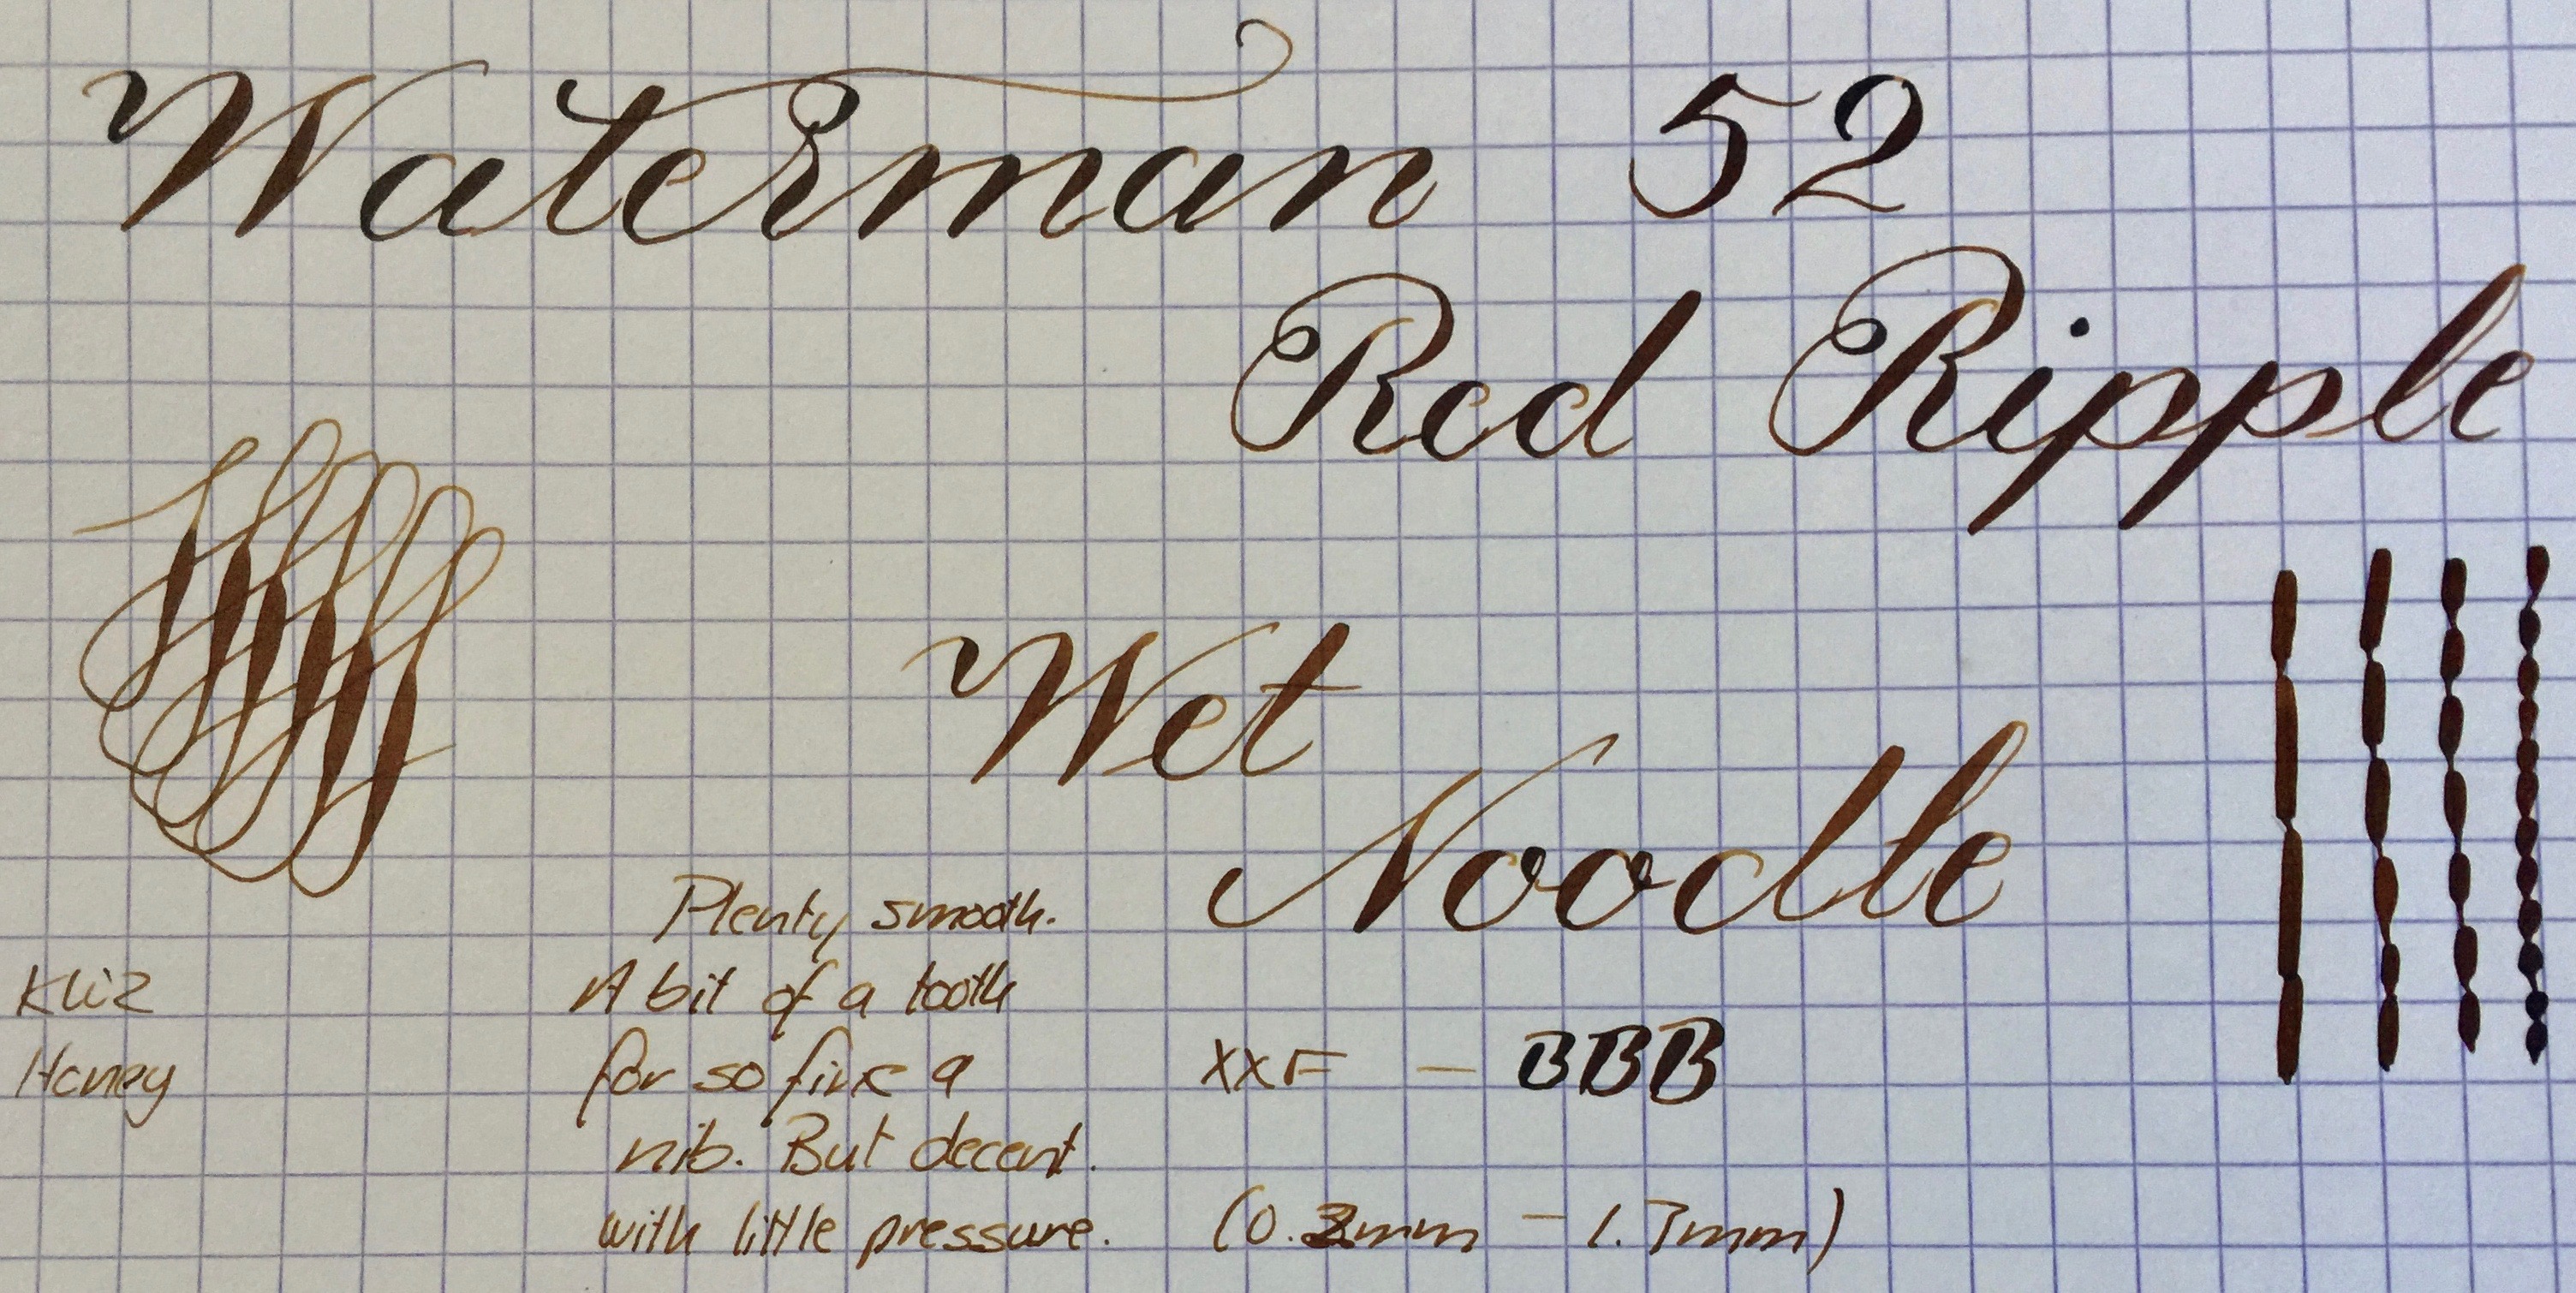 Waterman 52
Red Ripple
Wet
Noodle
Plenty smooth.
A bit of a tooth
for so fine a
nib. But decent.
with little pressure.
Honey
XXF — BBB
(0. mm — 1.7mm)